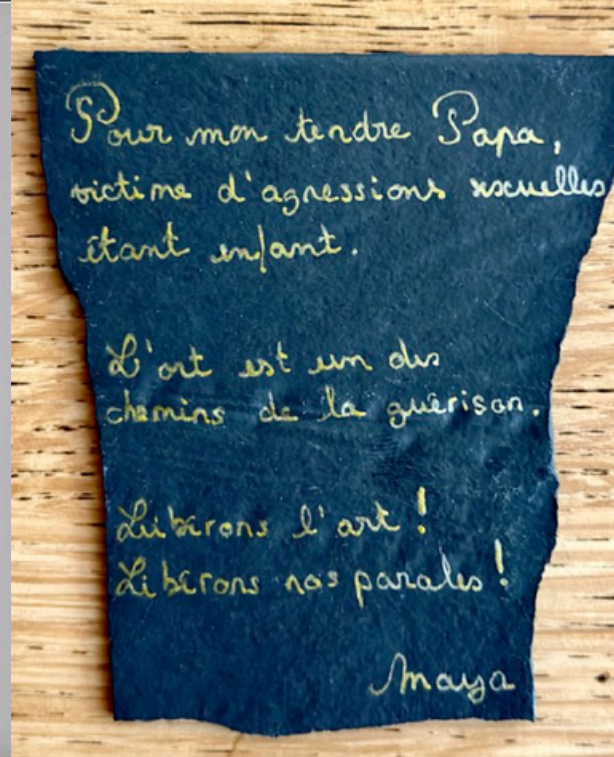 Pour mon tendre Papa,
victime d'agressions sexuelles
étant enfant.
L'art est un des
chemins de la guérison.
Libérons l'art !
Libérons nos paroles !
Maya